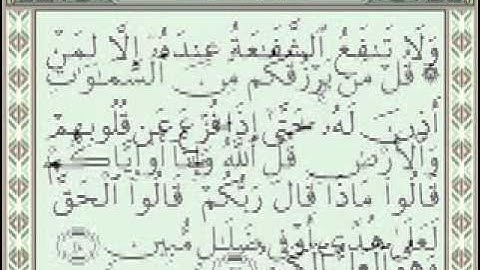 وَلَا تَنفَعُ ٱلشَّفَـٰعَةُ عِندَهُۥٓ إِلَّا لِمَنْ
۞ قُلْ مَن يَرْزُقُكُم مِّنَ ٱلسَّمَـٰوَٰتِ
أَذِنَ لَهُۥ حَتَّىٰٓ إِذَا فُزِّعَ عَن قُلُوبِهِمْ
وَٱلْأَرْضِ قُلِ ٱللَّهُ وَإِنَّآ أَوْ إِيَّاكُمْ
قَالُوا۟ مَاذَا قَالَ رَبُّكُمْ قَالُوا۟ ٱلْحَقَّ
لَعَلَىٰ هُدًى أَوْ فِى ضَلَـٰلٍ مُّبِينٍ
وَهُوَ ٱلْعَلِىُّ